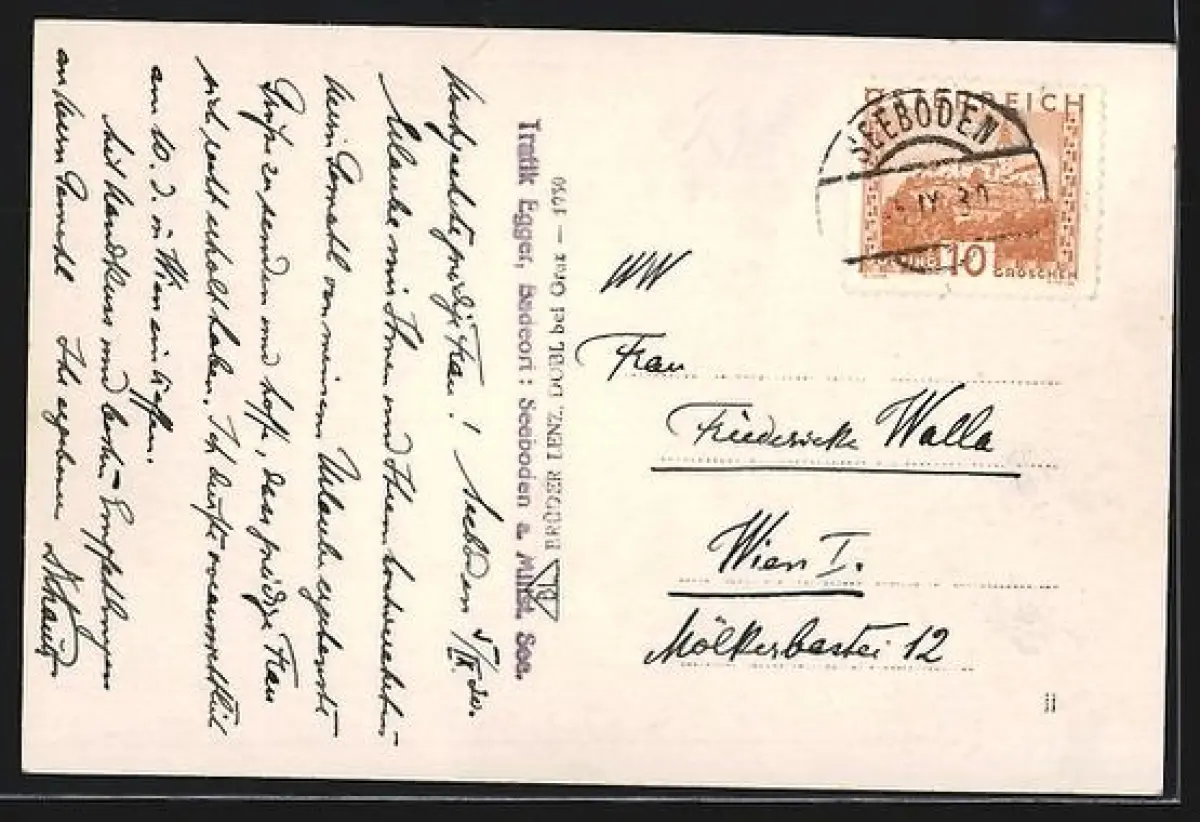 Hochgeehrte gnädige Frau! Seeboden 5/IX 30.
Erlaube mir Ihnen und Ihrem
Herrn Gemahl von meinem Urlaube ergebenste
Grüße zu senden und hoffe, dass gnädige Frau
sich recht erholt haben. Ich dürfte voraussichtlich
am 10. d. in Wien eintreffen.
Mit Handkuss und besten Empfehlungen
an Herrn Gemahl Ihr ergebener
Trafik Egger, Badeort: Seeboden a. Millst. See.
BRÜDER LENZ, DOBL bei Graz – 1930
ÖSTERREICH
SEEBODEN
IX 30
10
GROSCHEN
Frau
Friedericke Walla
Wien I.
Mölkerbastei 12